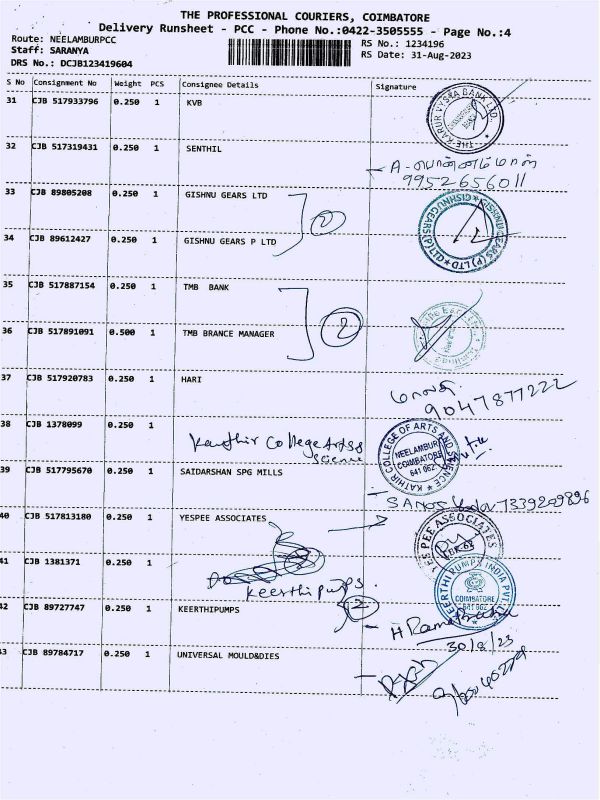 THE PROFESSIONAL COURIERS, COIMBATORE
Delivery Runsheet - PCC - Phone No.:0422-3505555 - Page No.:4
Route: NEELAMBURPCC RS No.: 1234196
Staff: SARANYA RS Date: 31-Aug-2023
DRS No.: DCJB123419604
S No Consignment No Weight PCS Consignee Details Signature
31 CJB 517933796 0.250 1 KVB
THE KARUR VYSYA BANK LTD.
32 CJB 517319431 0.250 1 SENTHIL
A-பொன்னம்மாள்
9952656011
33 CJB 89805208 0.250 1 GISHNU GEARS LTD
GISHNU GEARS (P) LTD
34 CJB 89612427 0.250 1 GISHNU GEARS P LTD
35 CJB 517887154 0.250 1 TMB BANK
2
36 CJB 517891091 0.500 1 TMB BRANCE MANAGER
37 CJB 517920783 0.250 1 HARI
9047877222
38 CJB 1378099 0.250 1 Kathir College Arts & Science
KATHIR COLLEGE OF ARTS AND SCIENCE
NEELAMBUR
COIMBATORE
641 062
39 CJB 517795670 0.250 1 SAIDARSHAN SPG MILLS
7339209896
40 CJB 517813180 0.250 1 YESPEE ASSOCIATES
YES PEE ASSOCIATES
41 CJB 1381371 0.250 1
Keerthi pumps.
KEERTHI PUMPS INDIA PVT. LTD
COIMBATORE
641 062
42 CJB 89727747 0.250 1 KEERTHIPUMPS
2
30/8/23
43 CJB 89784717 0.250 1 UNIVERSAL MOULD&DIES